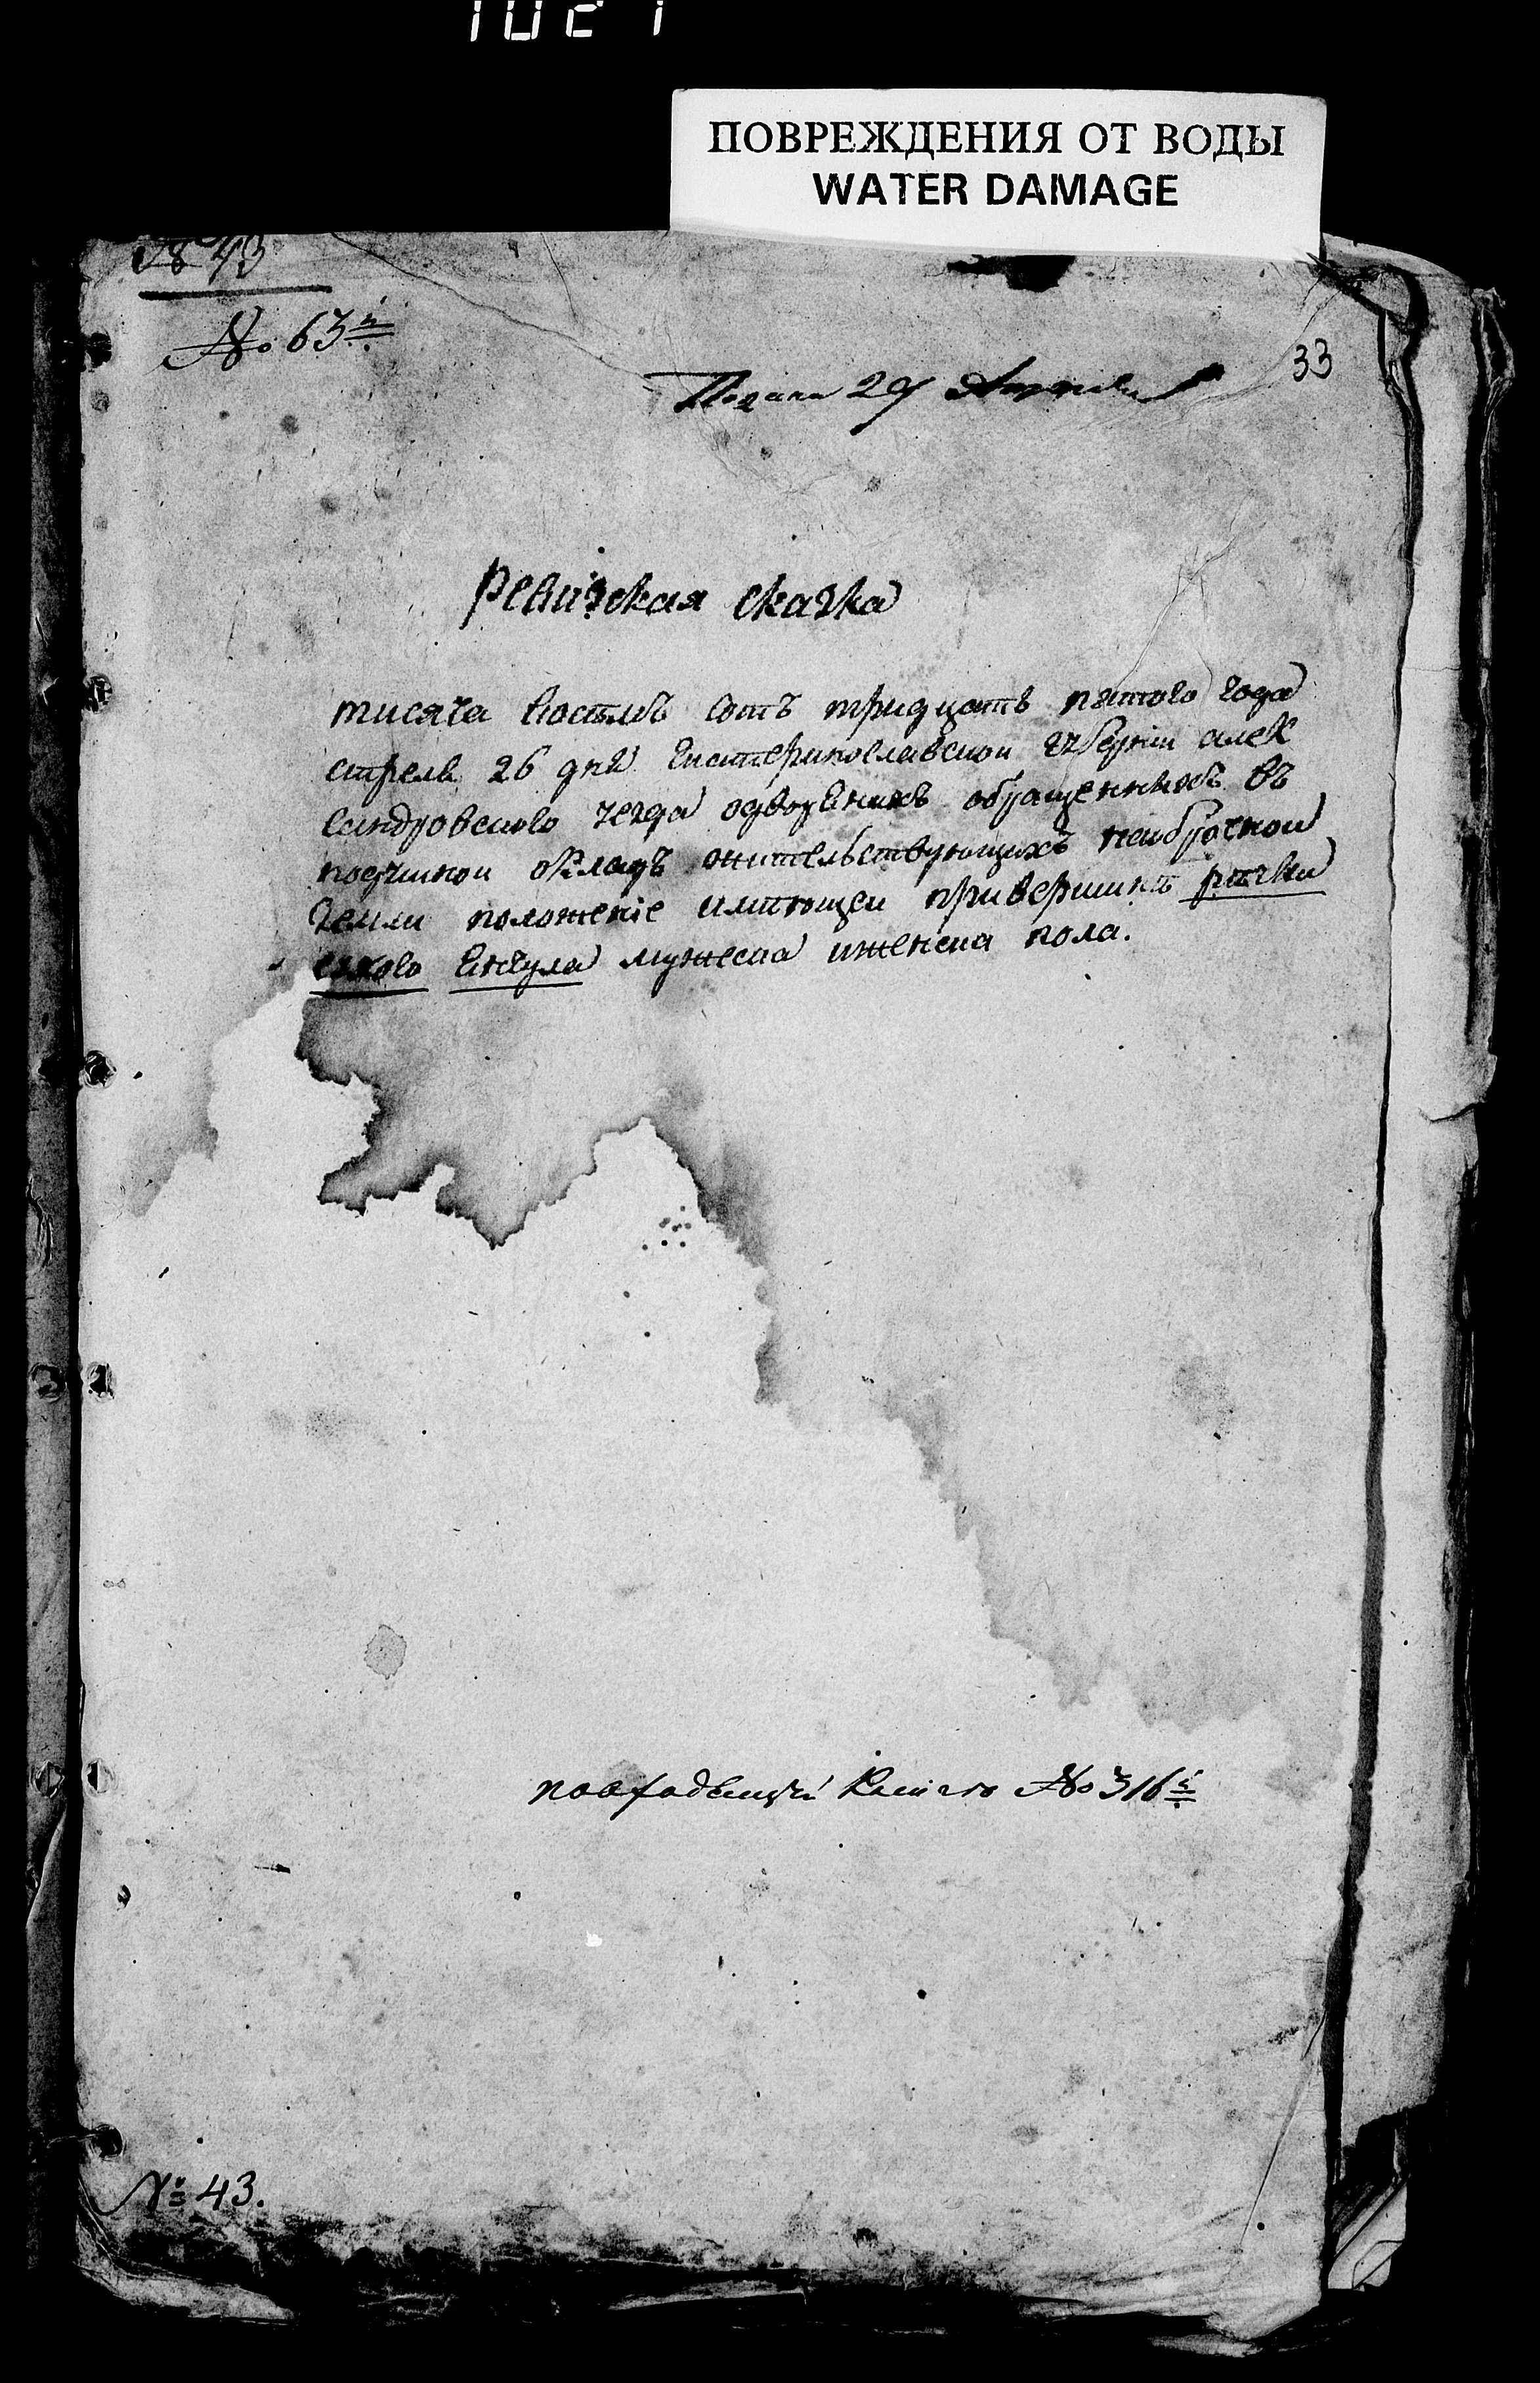 1027
ПОВРЕЖДЕНИЯ ОТ ВОДЫ
WATER DAMAGE
№ 43
№ 63й
33
Подана 29 Апреля
Ревизская сказка
тисяча востмъ сотъ тридцать пятого года
апреля 26 дня Екатеринославской губернии алек
сандровского уезда одворениихъ обращенныхъ въ
подушной окладъ жительствующихъ наоброчной
земли положение имеющей привершинѣ рѣчки
сухого Енчула мужеска иженска пола.
№ 316й
№ 43.